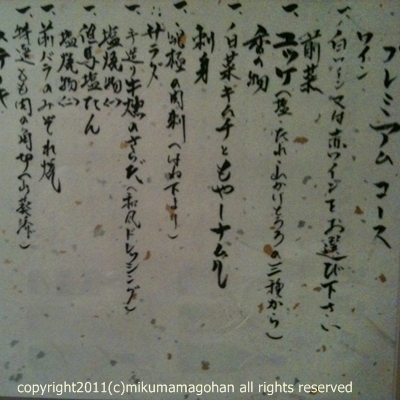 プレミアム コース
一、ワイン
白ワイン又は赤ワインをお選び下さい
一、前菜
ユッケ(塩・たれ・山かけとろろの三種から)
一、香の物
白菜キムチともやしナムル
一、刺身
究極の肉刺
一、サラダ
手造り牛燻のさらだ(和風ドレッシング)
一、塩焼物(一)
但馬塩たん
一、塩焼物(二)
前バラのみぞれ焼
特選もも肉の角切り
copyright2011(c)mikumamagohan all rights reserved